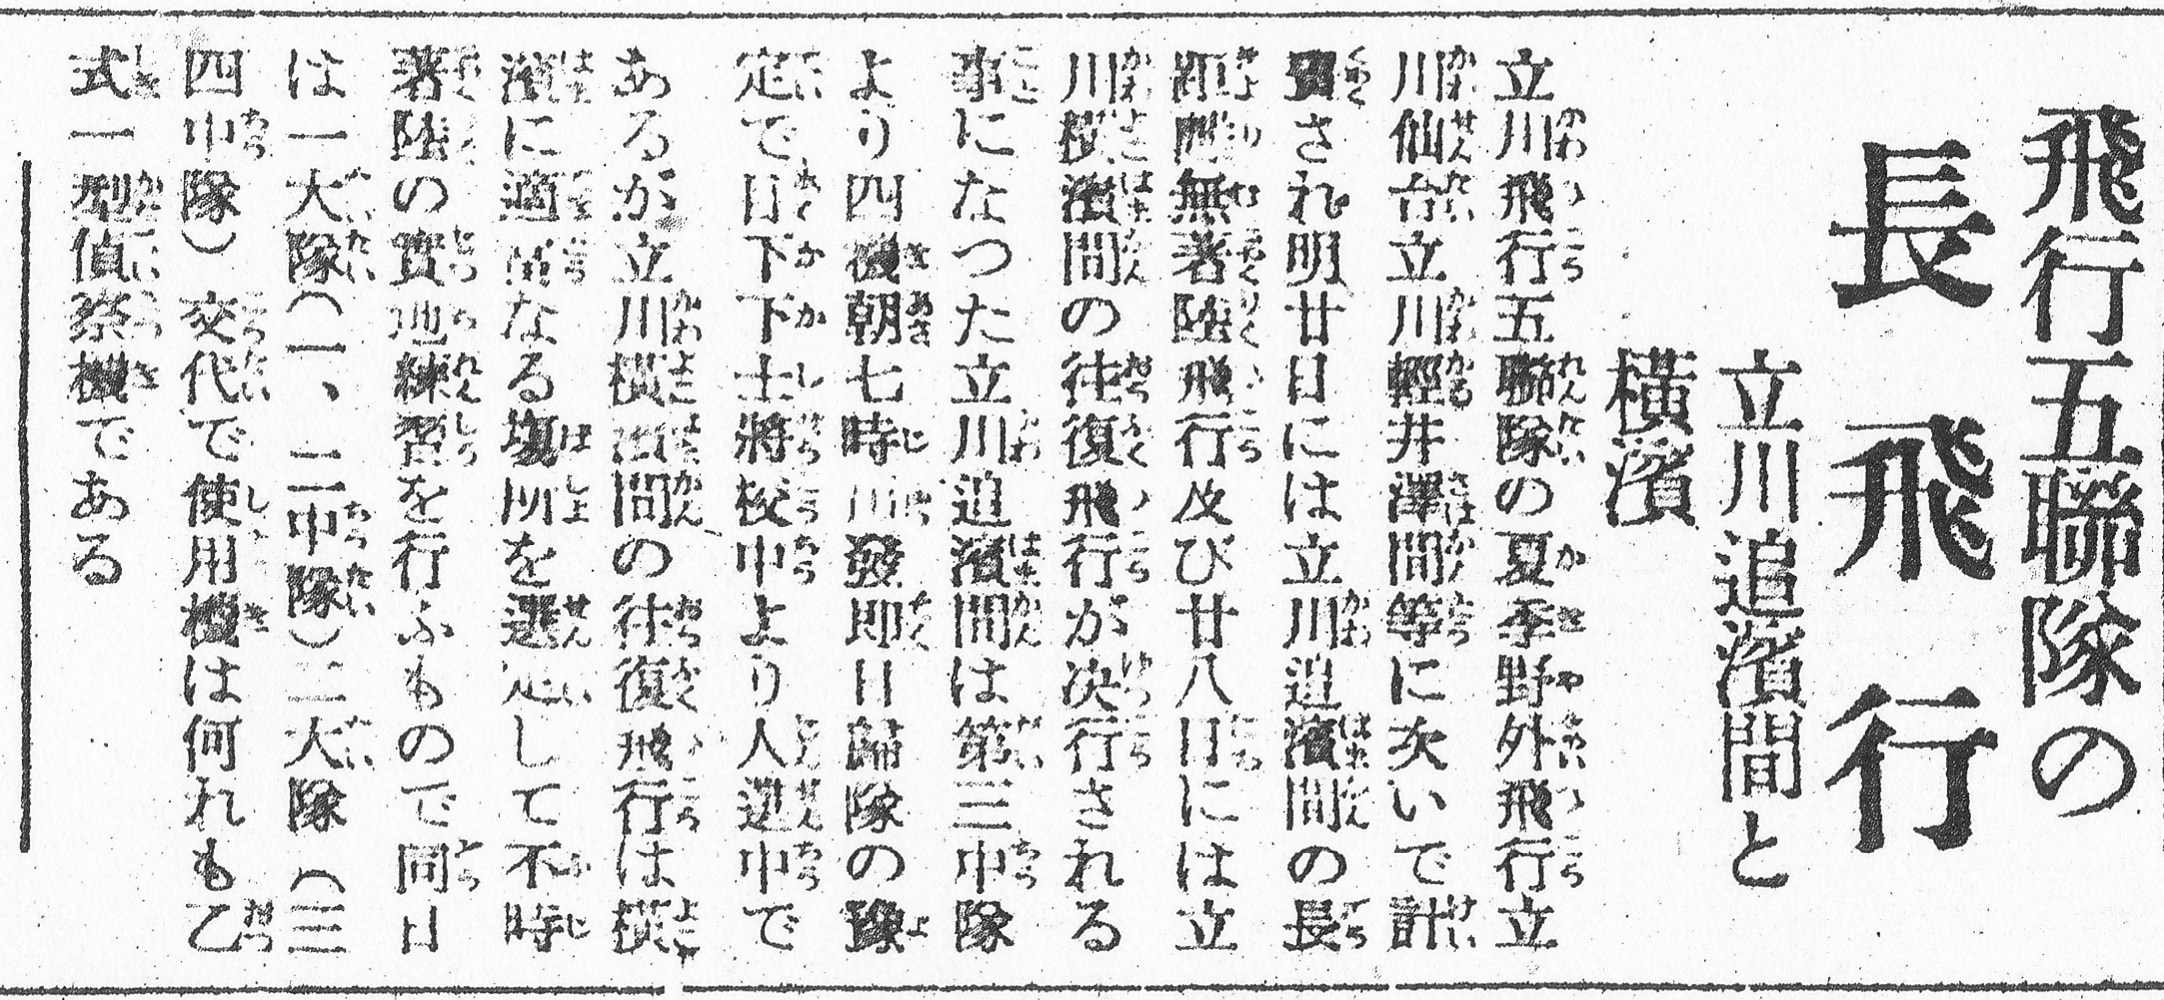 飛行五聯隊の
長飛行
立川追濱間と
横濱
立川飛行五聯隊の夏季野外飛行立
川仙台立川輕井澤間等に次いで計
畫され明廿日には立川追濱間の長
距離無著陸飛行及び廿八日には立
川横濱間の往復飛行が決行される
事になつた立川追濱間は第三中隊
より四機朝七時川發即日歸隊の豫
定で目下下士將校中より人選中で
あるが立川横濱間の往復飛行は横
濱に適當なる塲所を選定して不時
著陸の實地練習を行ふもので同日
は一大隊（一、二中隊）二大隊（三
四中隊）交代で使用機は何れも乙
式一型偵察機である